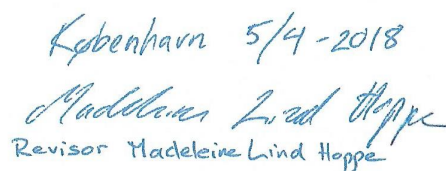 København 5/4-2018
Madeleine Lind Hoppe
Revisor Madeleine Lind Hoppe